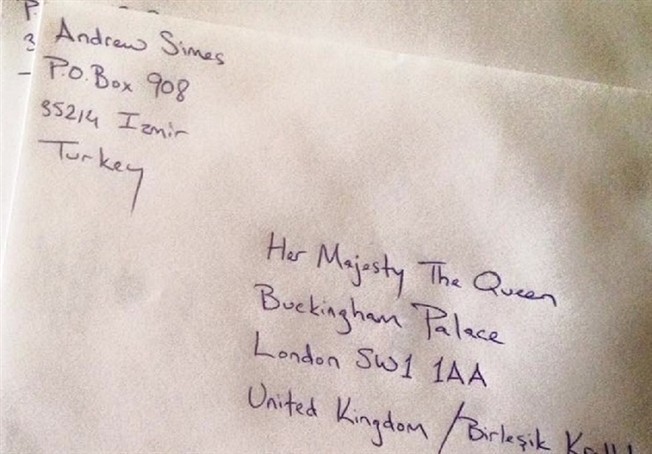 Andrew Simes
P.O. Box 908
35214 Izmir
Turkey
Her Majesty The Queen
Buckingham Palace
London SW1 1AA
United Kingdom / Birleşik